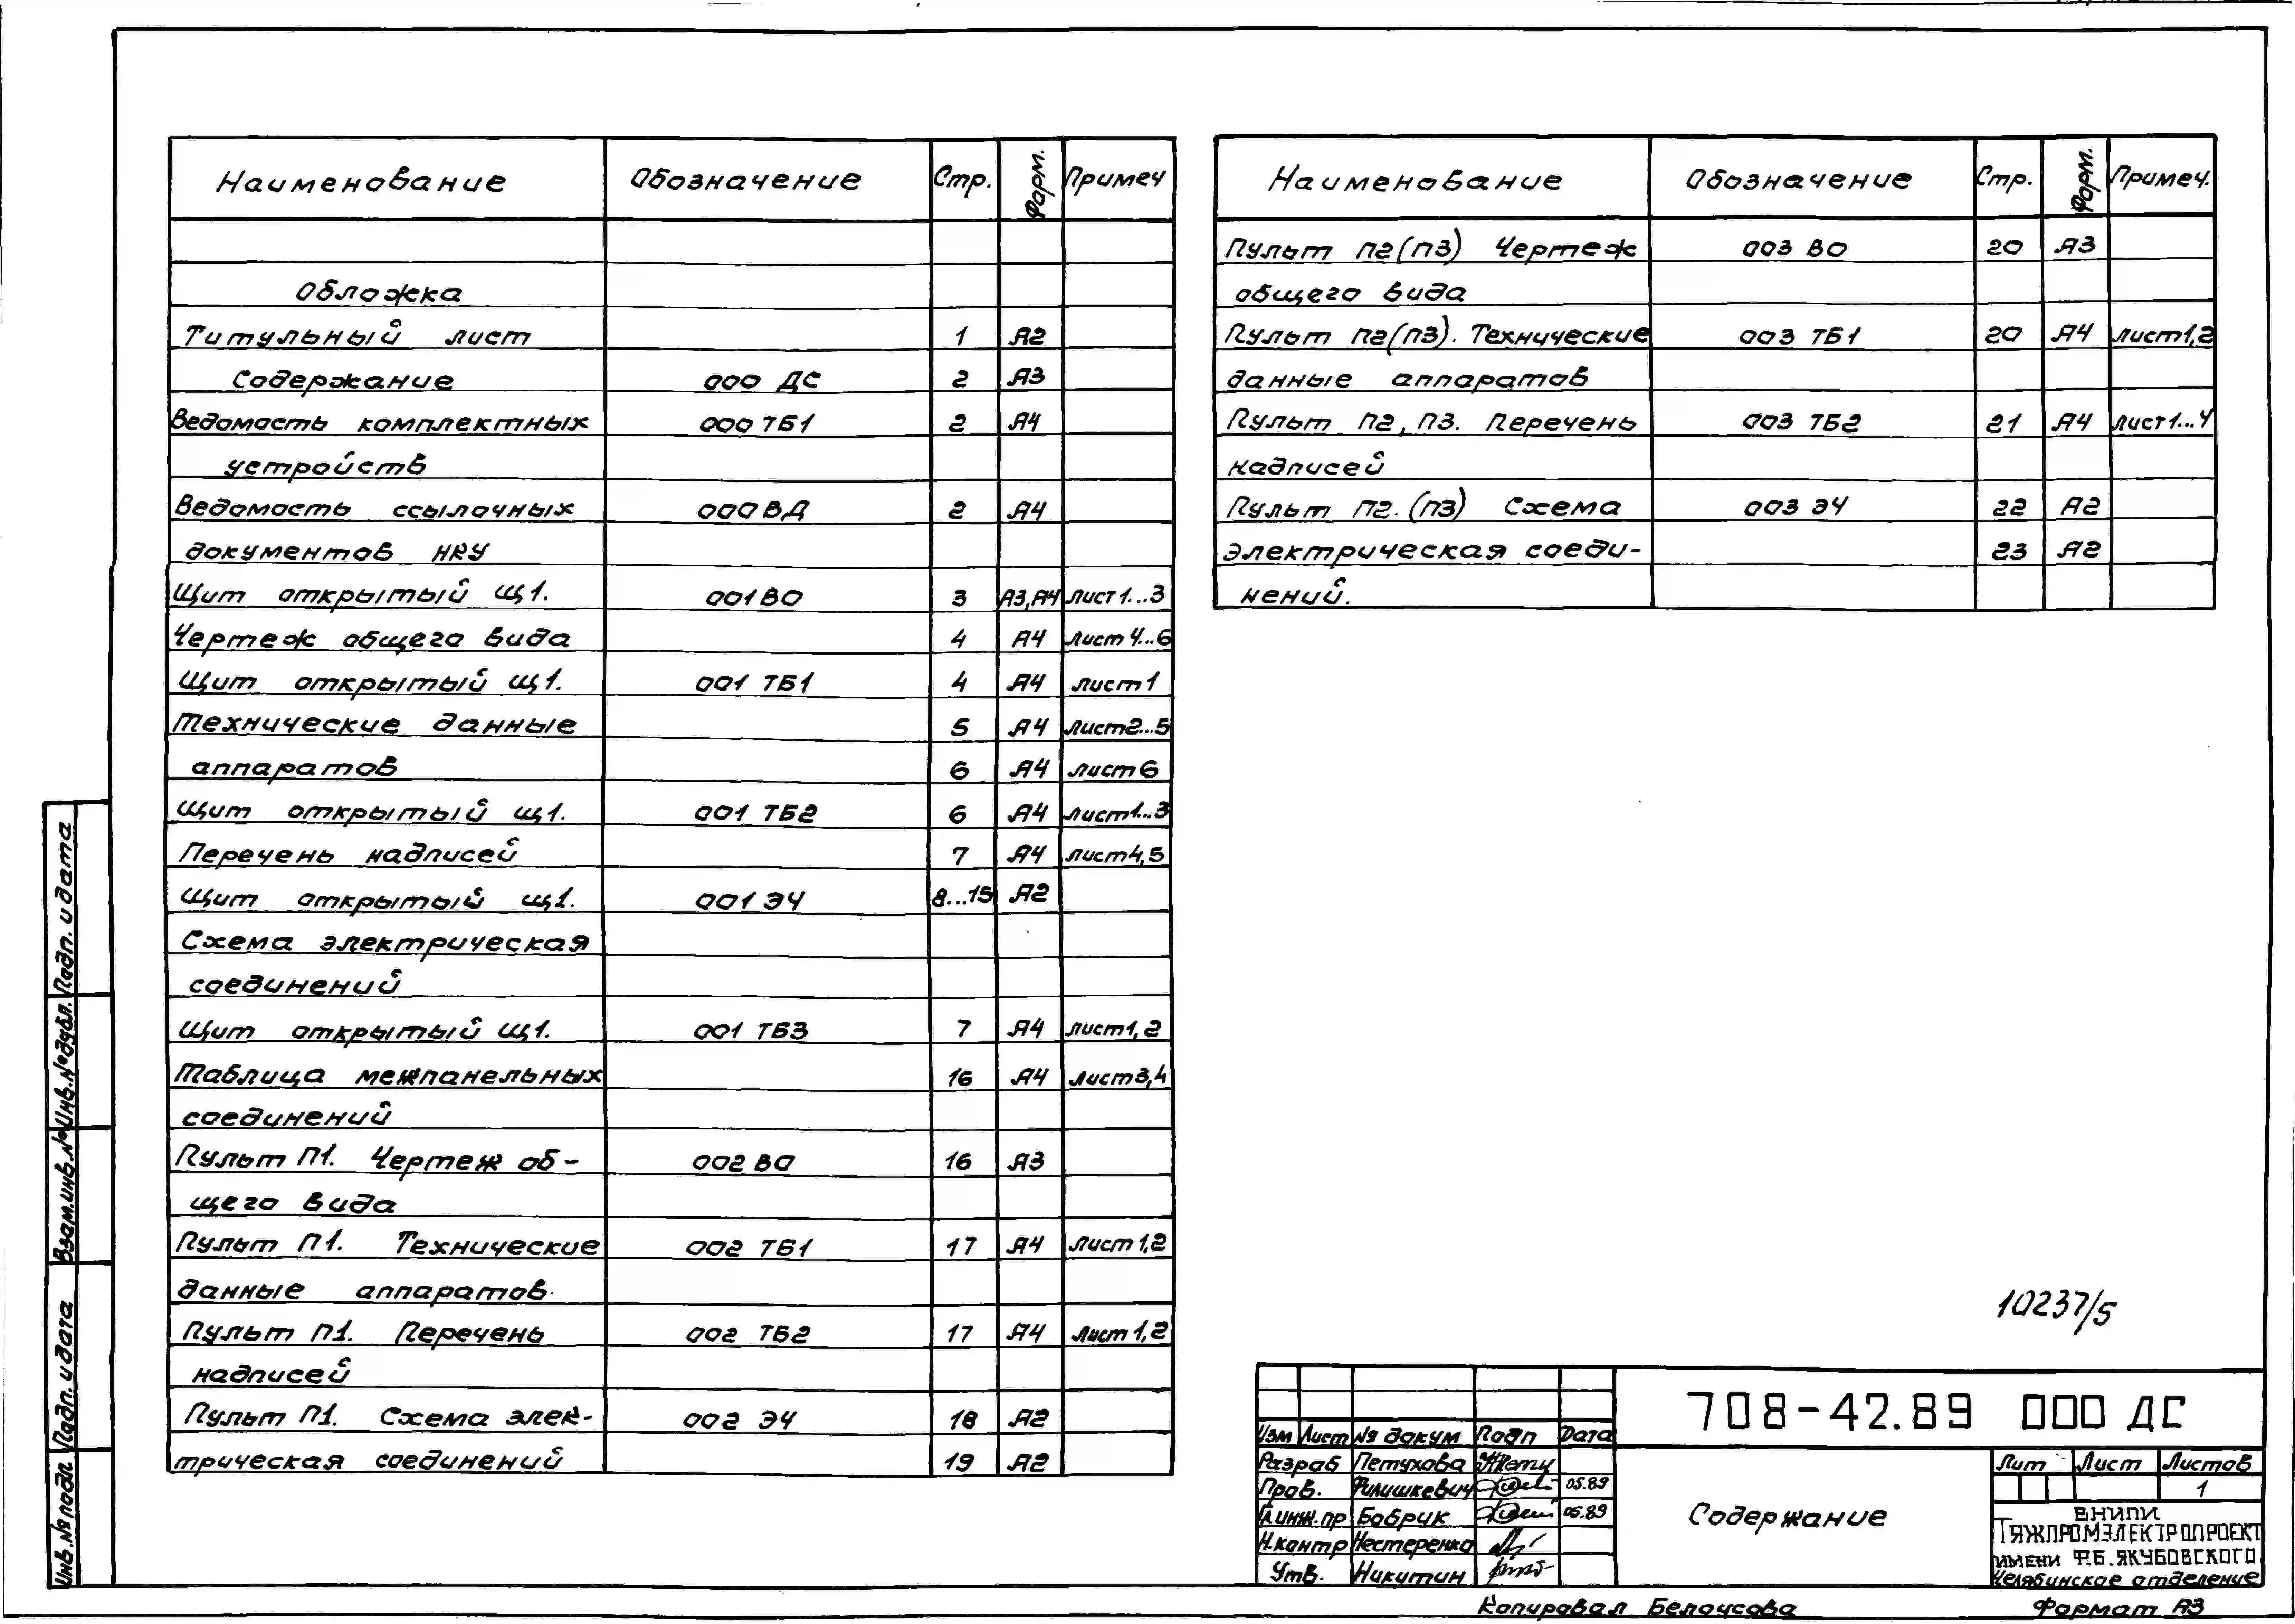 Наименование Обозначение Стр. Форм. Примеч
Обложка
Титульный лист 1 А2
Содержание 000 ДС 2 А3
Ведомость комплектных 000 ТБ1 2 А4
устройств
Ведомость ссылочных 000 ВД 2 А4
документов НКУ
Щит открытый Щ1. 001 ВО 3 А3,А4 лист 1...3
Чертеж общего вида 4 А4 лист 4...6
Щит открытый щ1. 001 ТБ1 4 А4 лист 1
Технические данные 5 А4 лист 2...5
аппаратов 6 А4 лист 6
Щит открытый щ1. 001 ТБ2 6 А4 лист 1...3
Перечень надписей 7 А4 лист 4,5
Щит открытый щ1. 001 Э4 8...15 А2
Схема электрическая
соединений
Щит открытый щ1. 001 ТБ3 7 А4 лист 1,2
Таблица межпанельных 16 А4 лист 3,4
соединений
Пульт П1. Чертеж об-
щего вида 002 ВО 16 А3
Пульт П1. Технические 002 ТБ1 17 А4 лист 1,2
данные аппаратов.
Пульт П1. Перечень 002 ТБ2 17 А4 Лист 1,2
надписей
Пульт П1. Схема элек- 002 Э4 18 А2
трическая соединений 19 А2
Наименование Обозначение Стр. Форм. Примеч.
Пульт П2(П3) Чертеж 003 ВО 20 А3
общего вида
Пульт П2(П3). Технические 003 ТБ1 20 А4 лист 1,2
данные аппаратов
Пульт П2, П3. Перечень 003 ТБ2 21 А4 лист 1...4
надписей
Пульт П2.(П3) Схема 003 Э4 22 А2
электрическая соеди- 23 А2
нений.
10237/5
708-42.89 000 ДС
Изм Лист № докум Подп Дата
Разраб Петухова
Пров. Филишкевич 05.89
Гл.инж.пр Бобрик 05.89
Н.контр Нестеренко
Утв. Никитин
Содержание
Лит Лист Листов
1
ВНИПИ
ТЯЖПРОМЭЛЕКТРОПРОЕКТ
ИМЕНИ Ф.Б.ЯКУБОВСКОГО
Челябинское отделение
Копировал Белоусова Формат А3
Инв.№ подл Подп. и дата Взам.инв.№ Инв.№ дубл. Подп. и дата